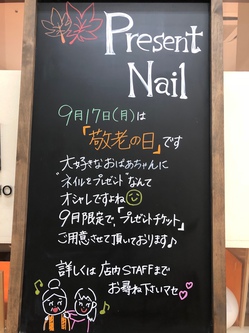 Present
Nail
9月17日(月)は
「敬老の日」です
大好きなおばあちゃんに
"ネイルをプレゼント"なんて
オシャレですよね
9月限定で、「プレゼントチケット」
ご用意させて頂いております♪
詳しくは 店内STAFFまで
お尋ね下さいマセ